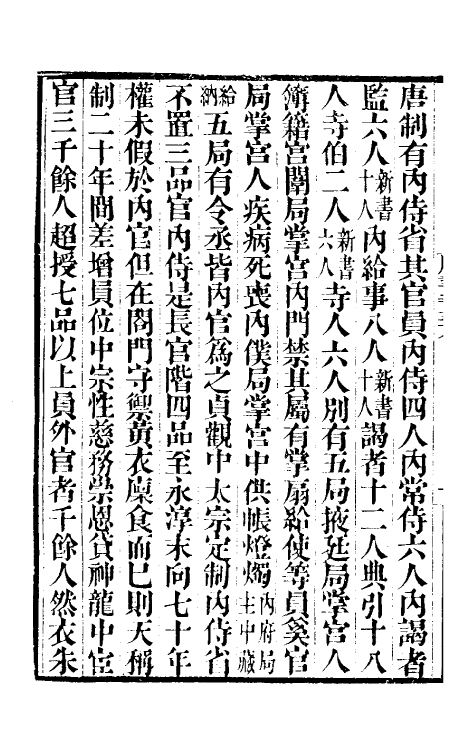 唐制有內侍省其官員內侍四人內常侍六人內謁者
監六人新書十人內給事八人新書十人謁者十二人典引十八
人寺伯二人新書六人寺人六人別有五局掖廷局掌宮人
簿籍宮闈局掌宮內門禁其屬有掌扇給使等員奚官
局掌宮人疾病死喪內僕局掌宮中供帳燈燭內府局主中藏
給納五局有令丞皆內官爲之貞觀中太宗定制內侍省
不置三品官內侍是長官階四品至永淳末向七十年
權未假於內官但在閤門守禦黃衣廩食而已則天稱
制二十年間差增員位中宗性慈務崇恩貸神龍中宦
官三千餘人超授七品以上員外官者千餘人然衣朱